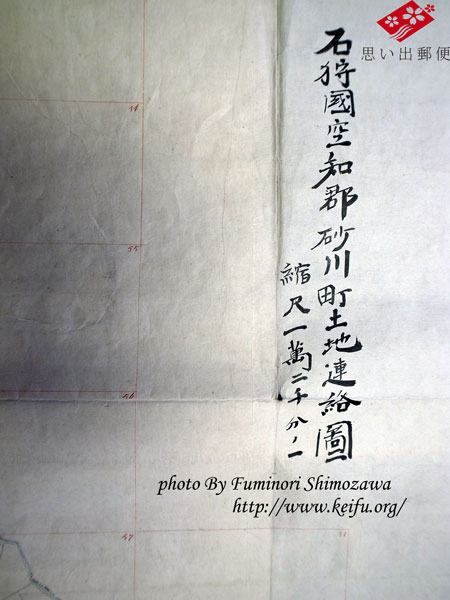 思い出郵便
石狩國空知郡砂川町土地連絡圖
縮尺一萬二千分ノ一
54
55
56
57
photo By Fuminori Shimozawa
http://www.keifu.org/